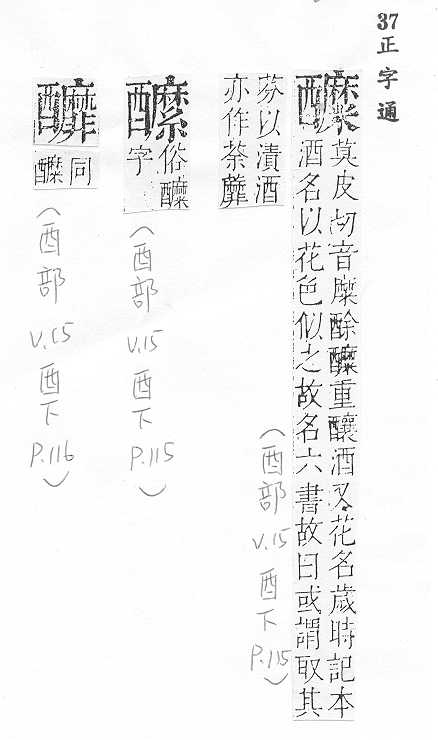 37正字通
醾 莫皮切音糜酴醾重釀酒又花名歲時記本
酒名以花色似之故名六書故曰或謂取其
芬以漬酒
亦作荼蘼
(酉部 v.15 酉下 P.115)
醿 俗醾
字
(酉部 v.15 酉下 P.115)
同
醾
(酉部 v.15 酉下 P.116)